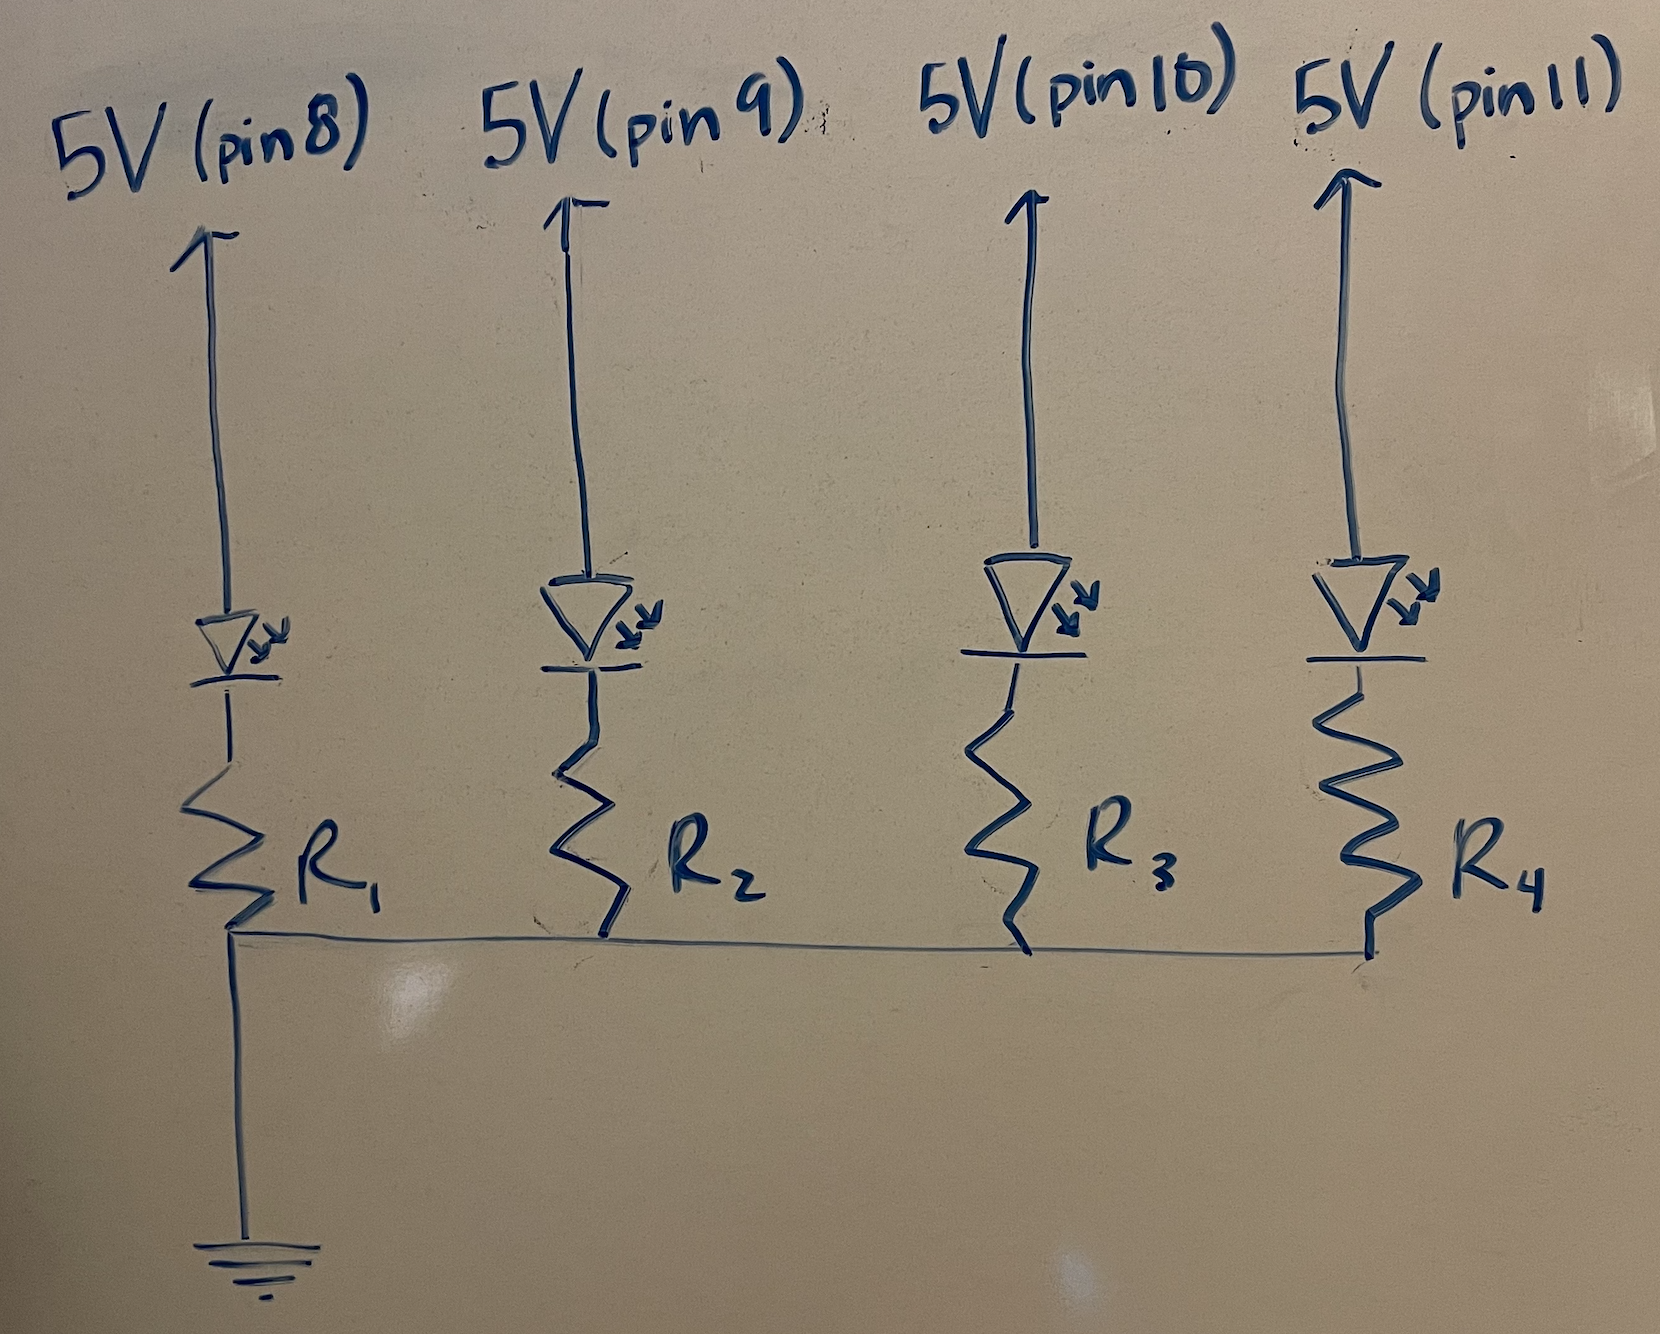 5V (pin 8) 5V (pin 9) 5V (pin 10) 5V (pin 11)
R1 R2 R3 R4